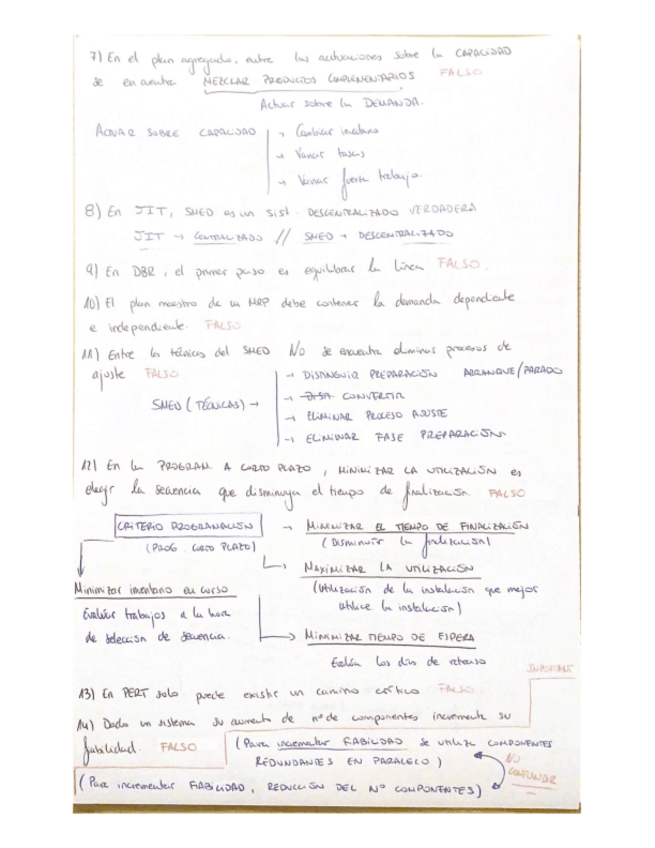 7) En el plan agregado, entre las actuaciones sobre la CAPACIDAD
se encuentra MEZCLAR PRODUCTOS COMPLEMENTARIOS FALSO
Actuar sobre la DEMANDA.
ACTUAR SOBRE CAPACIDAD → Cambiar inventario
→ Variar tasas
→ Variar fuerza trabajo.
8) En JIT, SMED es un sist. DESCENTRALIZADO VERDADERA
JIT → CENTRALIZADO // SMED → DESCENTRALIZADO
9) En DBR, el primer paso es equilibrar la línea FALSO.
10) El plan maestro de un MRP debe contener la demanda dependiente
e independiente. FALSO
11) Entre las técnicas del SMED NO se encuentra eliminar procesos de
ajuste FALSO
→ DISTINGUIR PREPARACIÓN ARRANQUE/PARADO
SMED (TÉCNICAS) → → CONVERTIR
→ ELIMINAR PROCESO AJUSTE
→ ELIMINAR FASE PREPARACIÓN
12) En la PROGRAM A CORTO PLAZO, MINIMIZAR LA UTILIZACIÓN es
elegir la secuencia que disminuya el tiempo de finalización FALSO
CRITERIO PROGRAMACIÓN → MINIMIZAR EL TIEMPO DE FINALIZACIÓN
(PROG. CORTO PLAZO) (Disminuir la finalización)
→ MAXIMIZAR LA UTILIZACIÓN
Minimizar inventario en curso (Utilización de la instalación que mejor
Evalúar trabajos a la hora utilice la instalación)
de selección de secuencia. → MINIMIZAR TIEMPO DE ESPERA
Evalúa los días de retraso
13) En PERT solo puede existir un camino crítico FALSO
14) Dado un sistema su aumento de nº de componentes incrementa su
fiabilidad. FALSO (Para incrementar FIABILIDAD se utiliza COMPONENTES
REDUNDANTES EN PARALELO) NO
CONFUNDIR
(Para incrementar FIABILIDAD, REDUCCIÓN DEL Nº COMPONENTES)